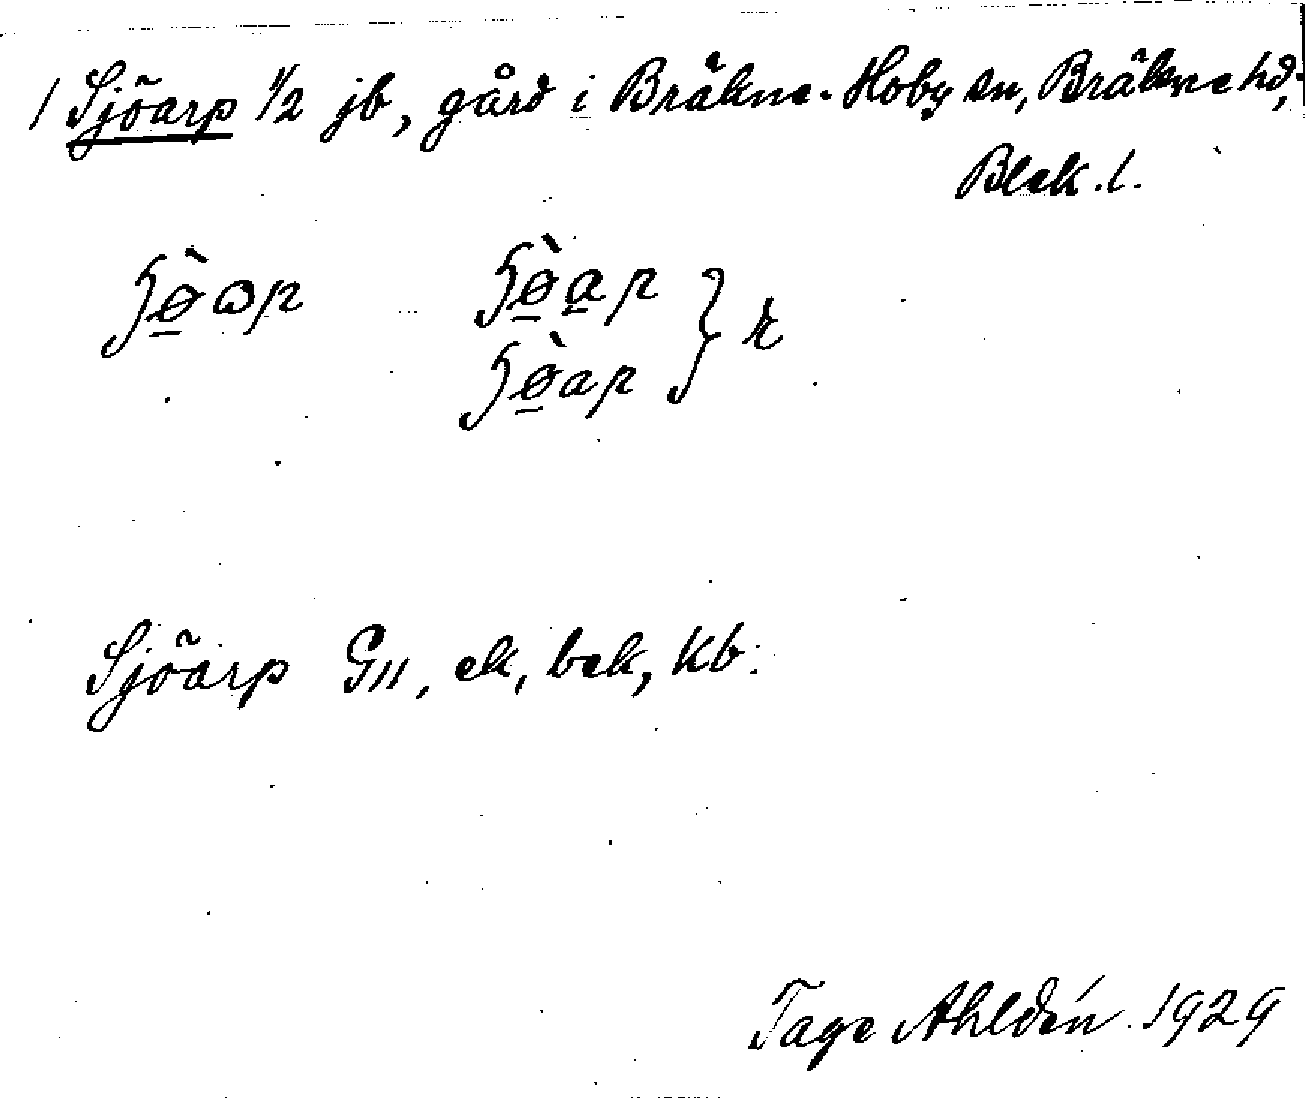 1 Sjöarp 1/2 jb, gård i Bräkne-Hoby sn, Bräkne hd,
Blek. l.
Sjöarp G11, ek, bek, kb.
Tage Ahldén 1929